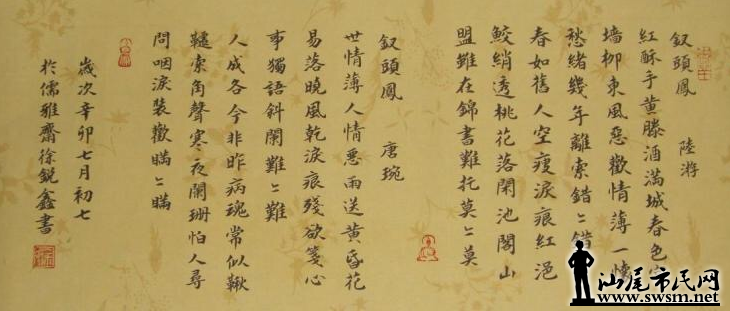 釵頭鳳 陸游
紅酥手黄滕酒滿城春色宮
墻柳東風惡歡情薄一懐
愁緒幾年離索錯々錯
春如舊人空瘦淚痕紅浥
鮫綃透桃花落閑池閣山
盟雖在錦書難托莫々莫
釵頭鳳 唐琬
世情薄人情惡雨送黄昏花
易落曉風乾淚痕殘欲箋心
事獨語斜闌難々難
人成各今非昨病魂常似鞦
韆索角聲寒夜闌珊怕人尋
問咽淚裝歡瞞々瞞
歲次辛卯七月初七
於儒雅齋徐銳鑫書
汕尾市民网
www.swsm.net